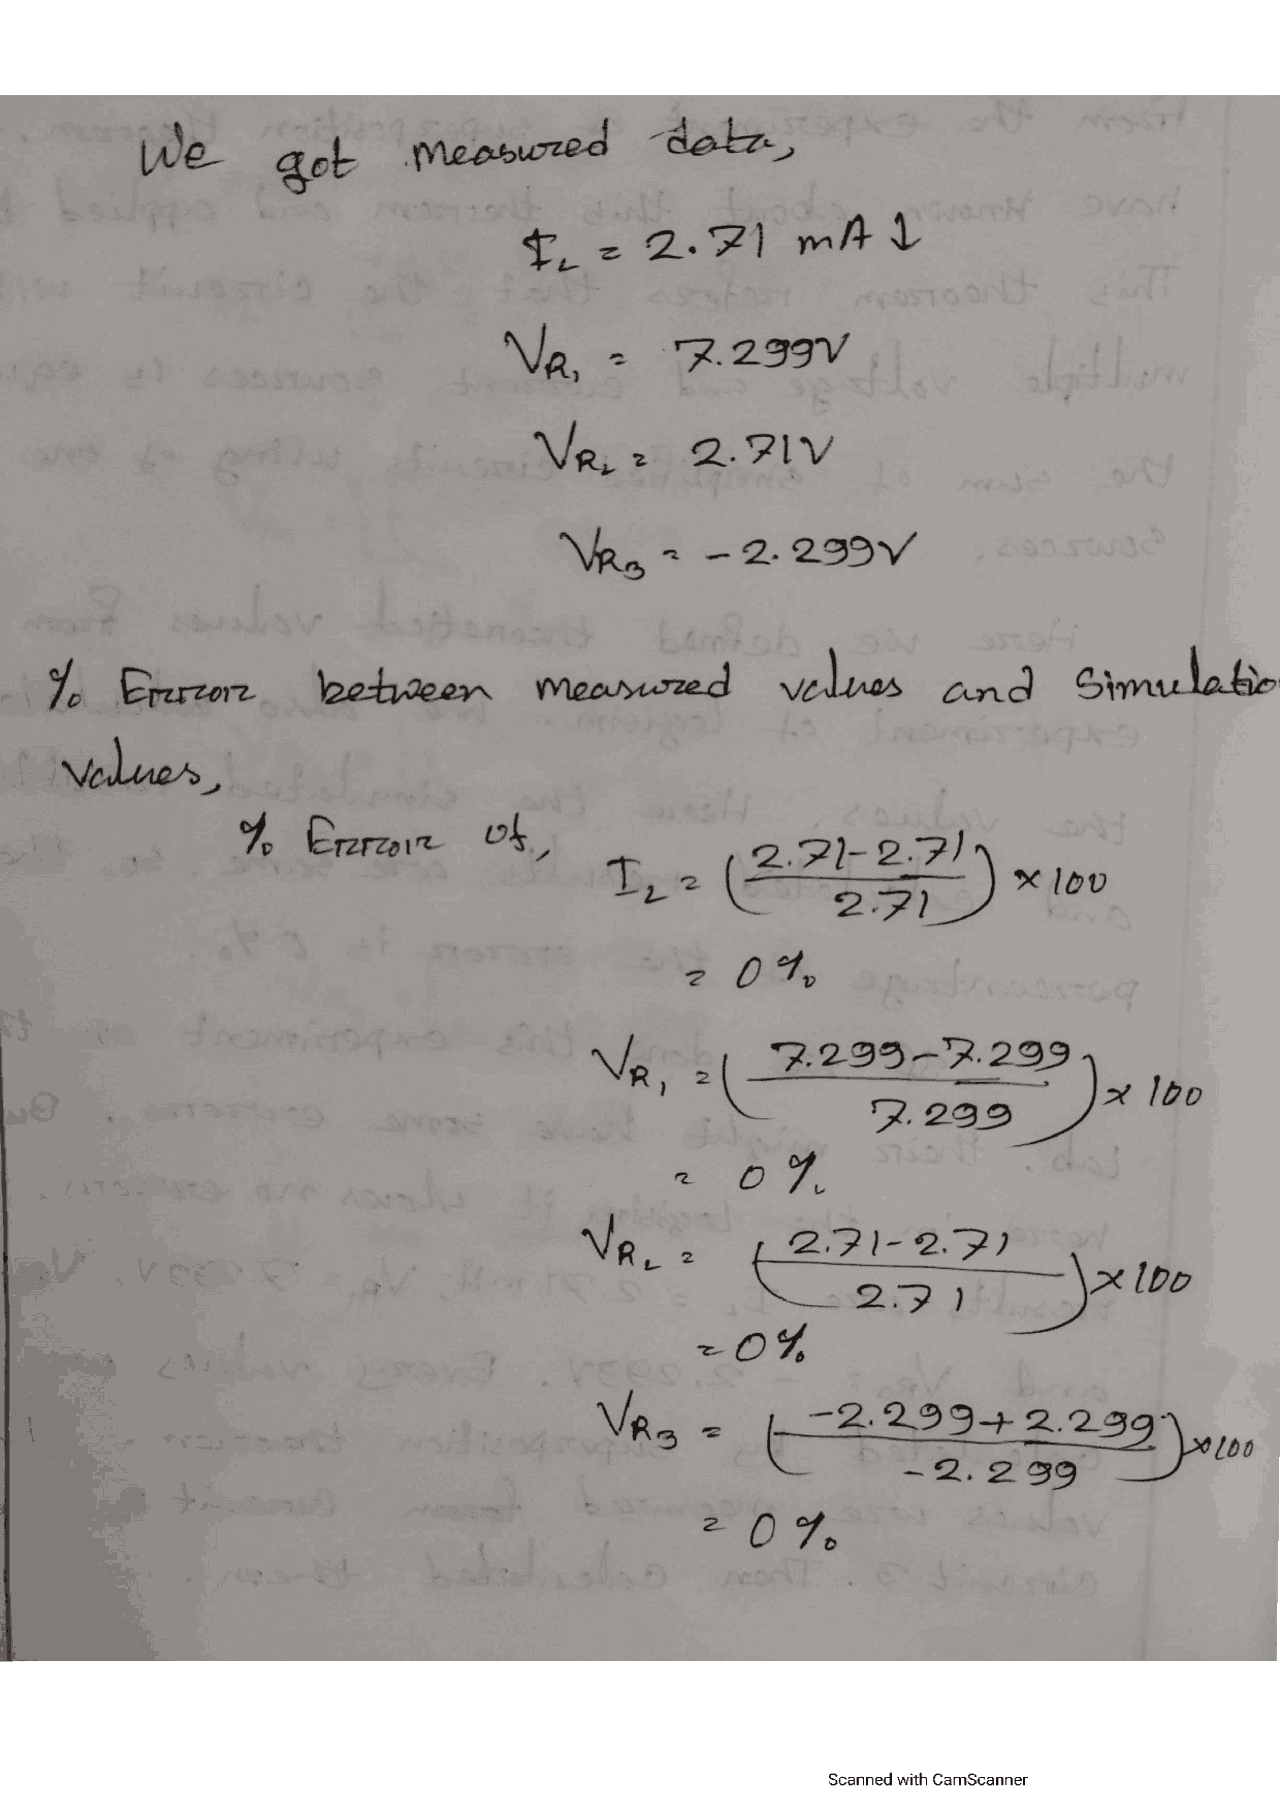 We got measured data,
I_L = 2.71 mA ↓
V_R1 = 7.299V
V_RL = 2.71V
V_R3 = -2.299V
% Error between measured values and Simulatio
values,
% Error of,
I_L = (2.71-2.71 / 2.71) × 100
= 0%
V_R1 = (7.299-7.299 / 7.299) × 100
= 0%
V_RL = (2.71-2.71 / 2.71) × 100
= 0%
V_R3 = (-2.299+2.299 / -2.299) × 100
= 0%
Scanned with CamScanner